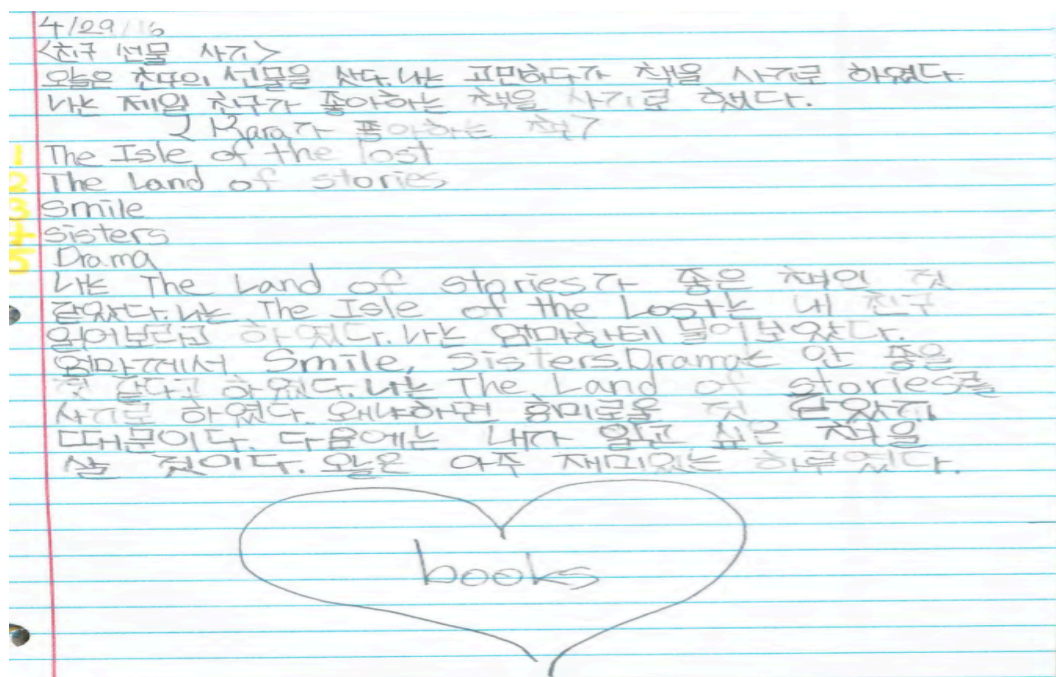 4/29/16
<친구 선물 사기>
오늘은 친구의 선물을 샀다. 나는 고민하다가 책을 사기로 하였다.
나는 제일 친구가 좋아하는 책을 사기로 했다.
Kara가 좋아하는 책?
1 The Isle of the lost
2 The Land of stories
3 Smile
4 sisters
5 Drama
나는 The Land of stories가 좋은 책인 것
같았다. 나는 The Isle of the Lost는 내 친구
읽어보라고 하였다. 나는 엄마한테 물어보았다.
엄마께서 Smile, sisters, Drama는 안 좋은
것 같다고 하였다. 나는 The Land of stories를
사기로 하였다. 왜냐하면 흥미로울 것 같았기
때문이다. 다음에는 내가 읽고 싶은 책을
살 것이다. 오늘은 아주 재미있는 하루였다.
books